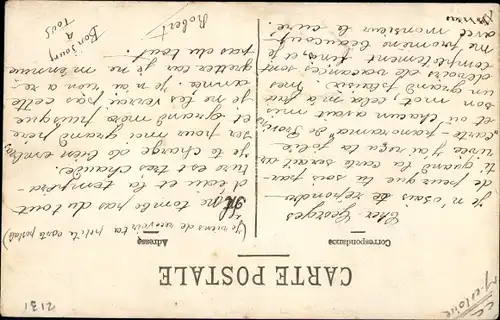 CARTE POSTALE
Correspondance
Adresse
Cher Georges
je n'osais te répondre
de peur que tu sois par-
ti quand la carte serait ar-
rivée j'ai reçu ta jolie
carte "panorama" de
et où chacun avait mis
son mot, cela m'a fait
un grand plaisir. Mes
devoirs de vacances sont
complètement finis, et je
me promène beaucoup
avec monsieur le curé.
(je viens de recevoir ta petite carte postale)
Il ne tombe pas du tout
d'eau et la tempéra-
ture est très chaude.
je te charge de bien embras
ser pour moi grand père
et grand mère puisque
je ne les verrai pas cette
année. je n'ai rien à re-
gretter car je ne m'ennuie
pas du tout.
Robert
Bonjour
à
Tous
2131